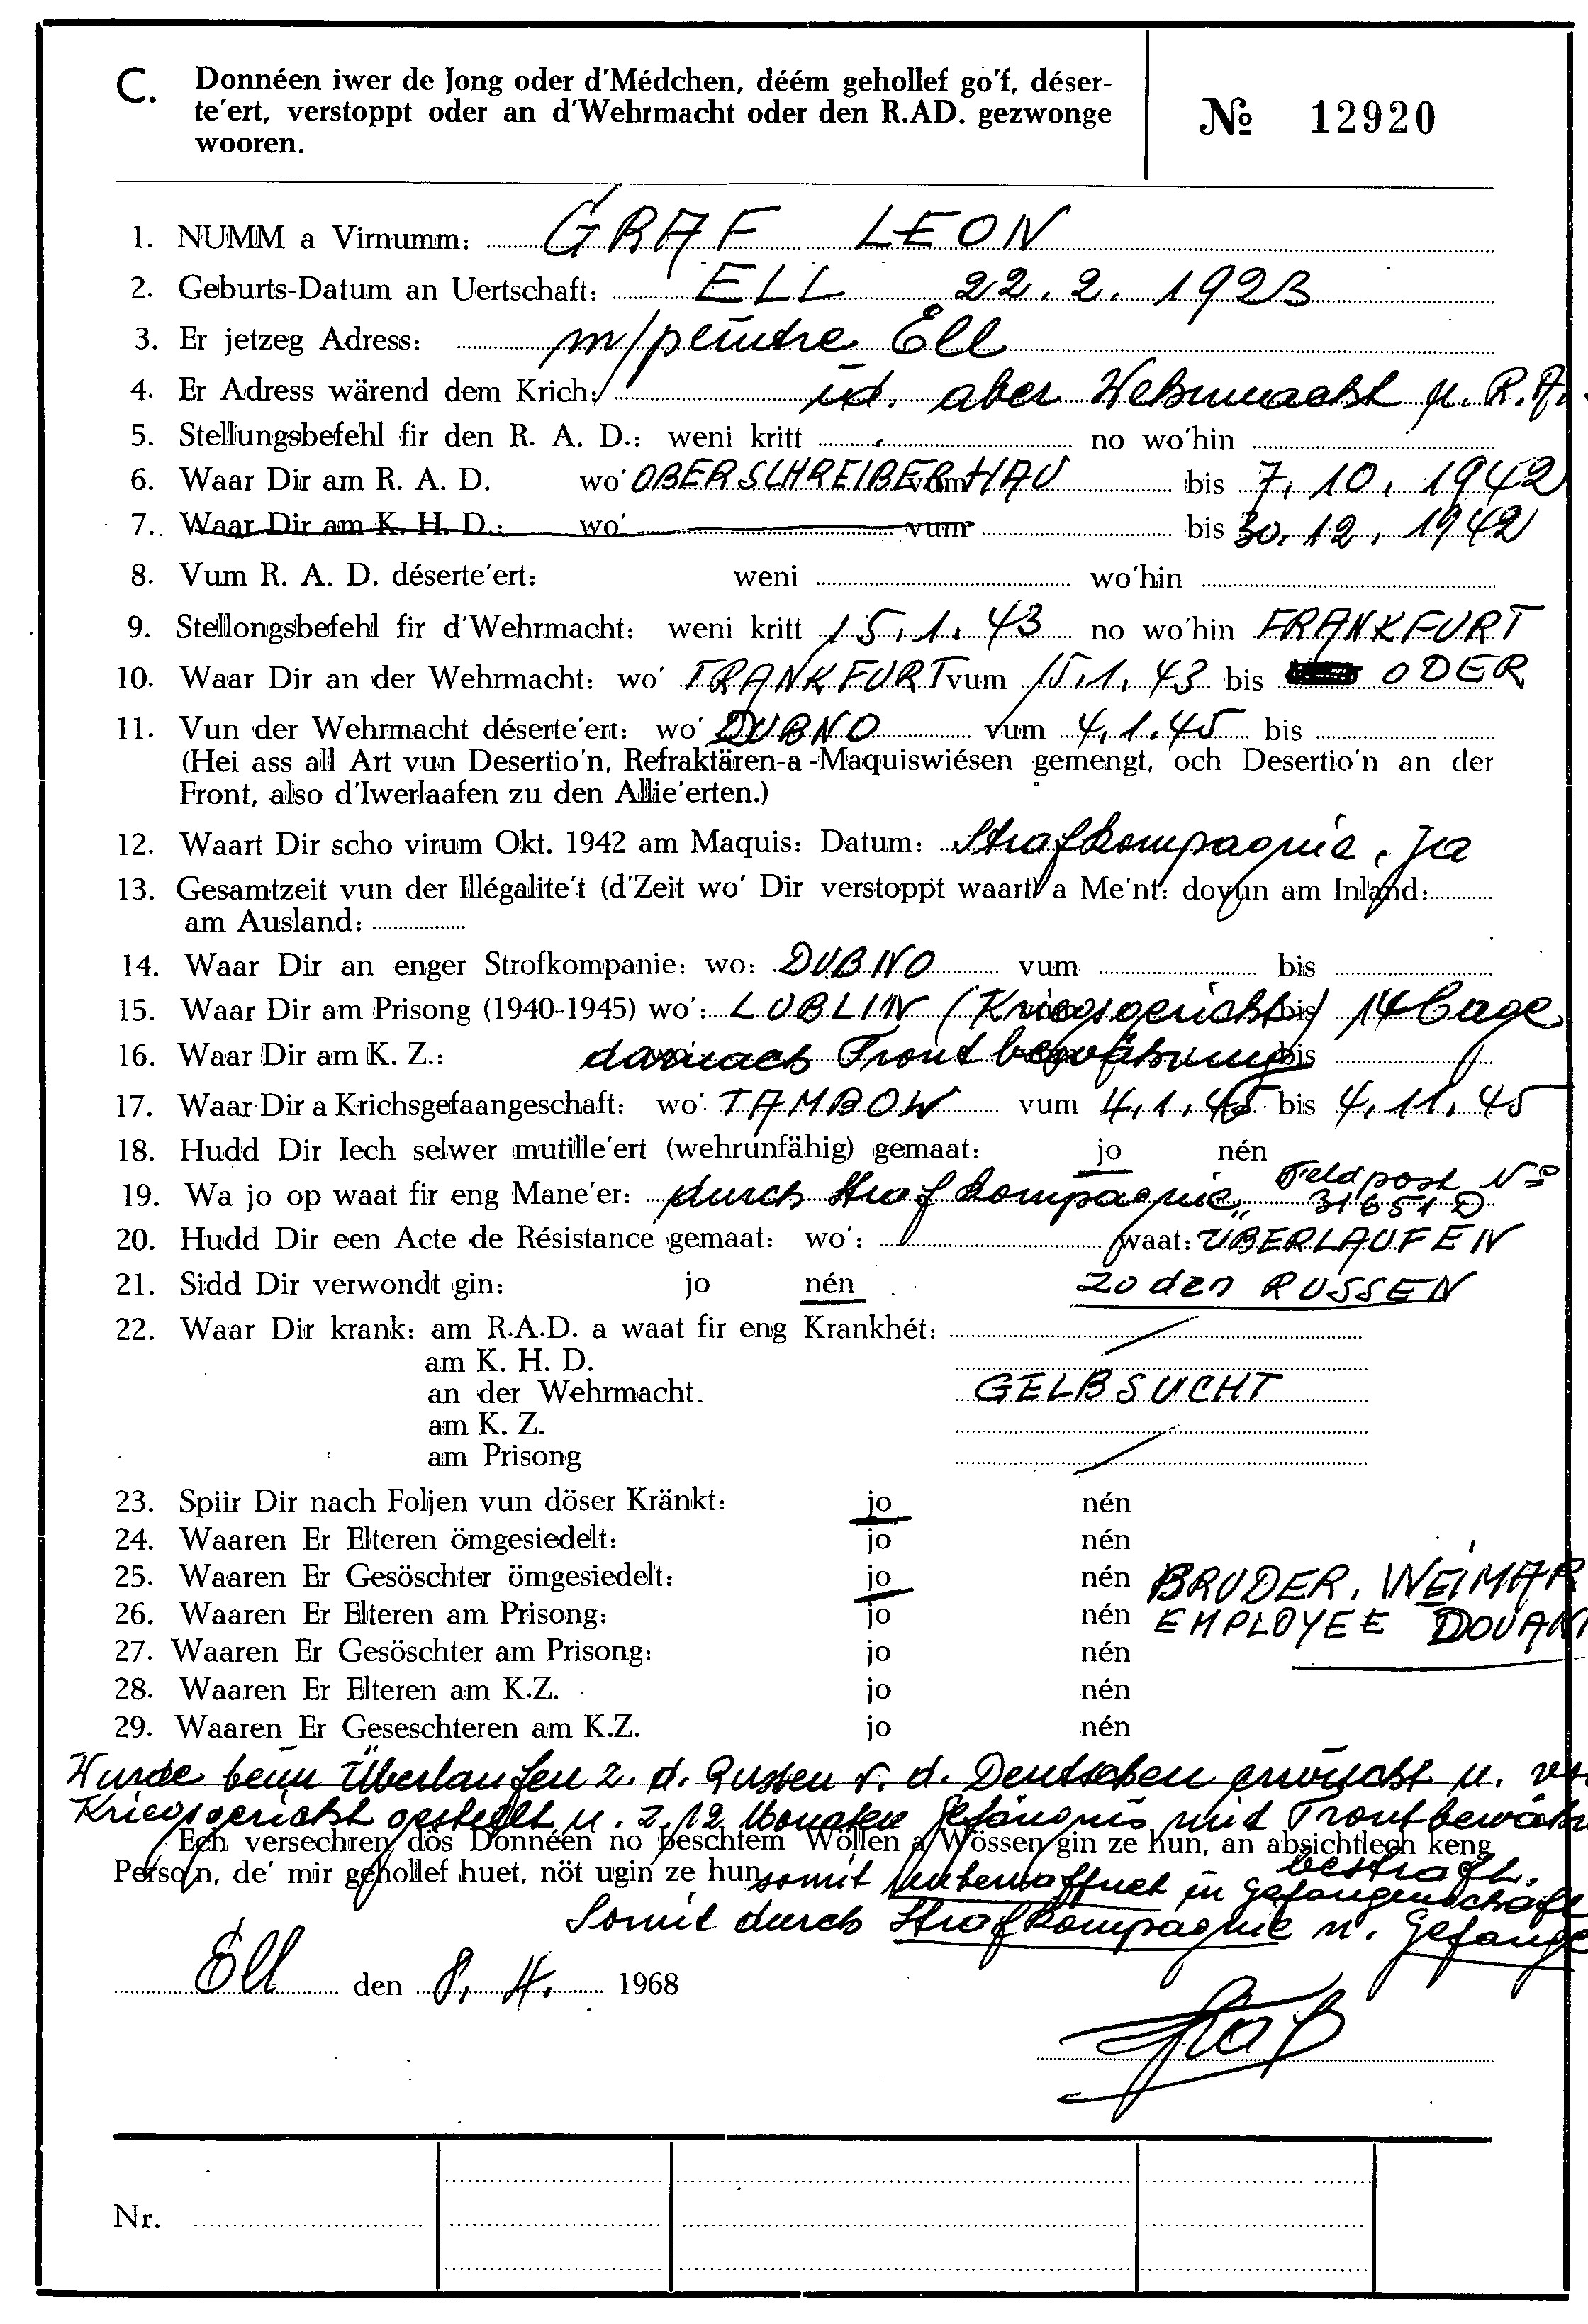 C. Donnéen iwer de Jong oder d'Médchen, déém gehollef go'f, déser-
te'ert, verstoppt oder an d'Wehrmacht oder den R.AD. gezwonge
wooren.
№ 12920
1. NUMM a Virnumm: GRAF LEON
2. Geburts-Datum an Uertschaft: ELL 22.2.1923
3. Er jetzeg Adress: m/peintre Ell
4. Er Adress wärend dem Krich: id. aber Wehrmacht u. R.A.
5. Stellungsbefehl fir den R. A. D.: weni kritt no wo'hin
6. Waar Dir am R. A. D. wo' OBERSCHREIBERHAU vum bis 7.10.1942
7. Waar Dir am K. H. D.: wo' vum bis 30.12.1942
8. Vum R. A. D. déserte'ert: weni wo'hin
9. Stellongsbefehl fir d'Wehrmacht: weni kritt 15.1.43 no wo'hin FRANKFURT
10. Waar Dir an der Wehrmacht: wo' FRANKFURT vum 15.1.43 bis ODER
11. Vun der Wehrmacht déserte'ert: wo' DUBNO vum 4.1.45 bis
(Hei ass all Art vun Desertio'n, Refraktären-a-Maquiswiésen gemengt, och Desertio'n an der
Front, also d'Iwerlaafen zu den Allie'erten.)
12. Waart Dir scho virum Okt. 1942 am Maquis: Datum: Strafkompagnie, Ja
13. Gesamtzeit vun der Illégalite't (d'Zeit wo' Dir verstoppt waart) a Me'nt: dovun am Inland:
am Ausland:
14. Waar Dir an enger Strofkompanie: wo: DUBNO vum bis
15. Waar Dir am Prisong (1940-1945) wo': LUBLIN (Kriegsgericht) bis 14 Tage
16. Waar Dir am K. Z.: darnach Frontbewährung bis
17. Waar Dir a Krichsgefaangeschaft: wo' TAMBOW vum 4.1.45 bis 4.11.45
18. Hudd Dir Iech selwer mutille'ert (wehrunfähig) gemaat: jo nén
19. Wa jo op waat fir eng Mane'er: durch Strafkompagnie, Feldpost No
31651D
20. Hudd Dir een Acte de Résistance gemaat: wo': waat: ÜBERLAUFEN
21. Sidd Dir verwondt gin: jo nén zo den RUSSEN
22. Waar Dir krank: am R.A.D. a waat fir eng Krankhét:
am K. H. D.
an der Wehrmacht. GELBSUCHT
am K. Z.
am Prisong
23. Spiir Dir nach Foljen vun döser Kränkt: jo nén
24. Waaren Er Elteren ömgesiedelt: jo nén
25. Waaren Er Gesöschter ömgesiedelt: jo nén BRUDER. WEIMAR
26. Waaren Er Elteren am Prisong: jo nén EMPLOYEE DOUAN
27. Waaren Er Gesöschter am Prisong: jo nén
28. Waaren Er Elteren am K.Z. jo nén
29. Waaren Er Geseschteren am K.Z. jo nén
Wurde beim Überlaufen z. d. Russen v. d. Deutschen erwischt u. vor
Kriegsgericht gestellt u. z. 12 Monaten Gefängnis mit Frontbewähr
Ech versechren dös Donnéen no beschtem Wöllen a Wössen gin ze hun, an absichtlech keng
bestraft.
Perso'n, de' mir gehollef huet, nöt ugin ze hun. somit unbewaffnet in Gefangenschaft
Somit durch Strafkompagnie u. Gefange
Ell den 8. 4. 1968
Graf
Nr.